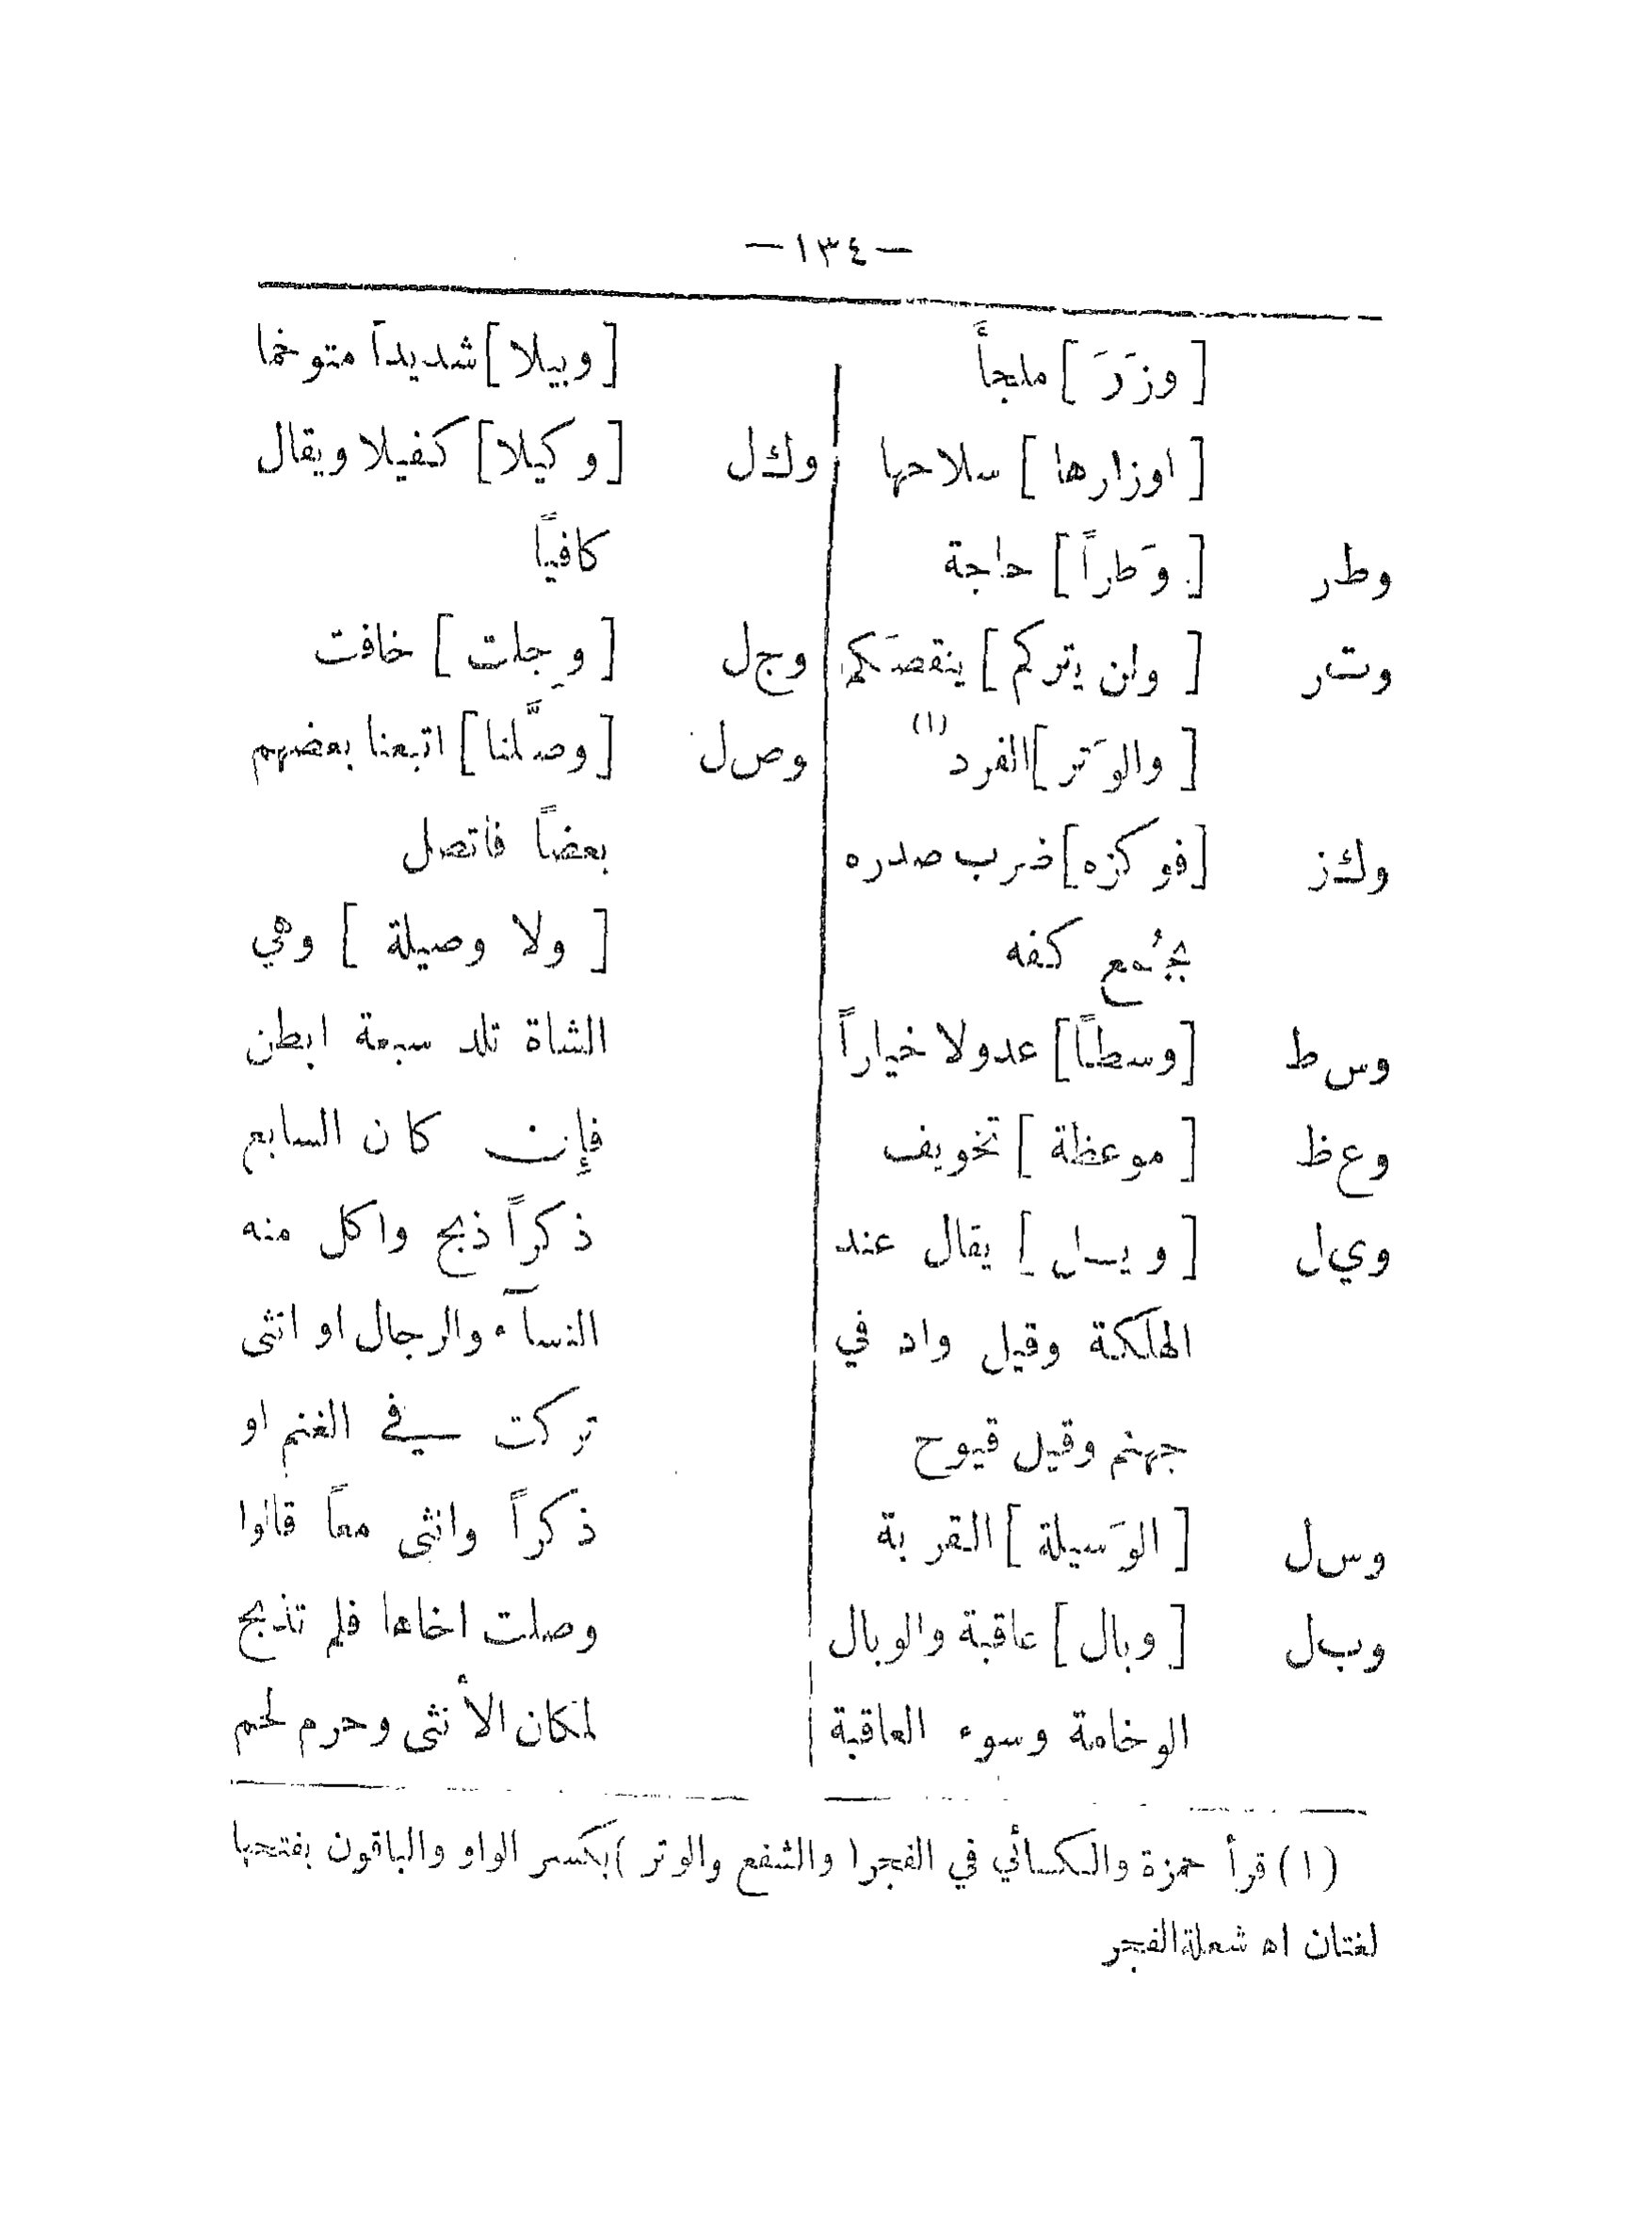 —١٣٤—
[ وزَرَ ] ملجأً
[ اوزارها ] سلاحها
وطر [ وَطراً ] حاجة
وتر [ ولن يتركم ] ينقصَكم
[ والوَتر ] الفرد (١)
وكز [فوكزه] ضرب صدره
بجُمع كفه
وسط [وسطاً] عدولا خياراً
وعظ [ موعظة ] تخويف
ويل [ ويل ] يقال عند
الهلكة وقيل واد في
جهنم وقيل قيوح
وسل [ الوَسيلة ] القربة
وبل [ وبال ] عاقبة والوبال
الوخامة وسوء العاقبة
[ وبيلا ] شديداً متوخما
وكل [ وكيلا ] كفيلا ويقال
كافياً
وجل [ وجِلت ] خافت
وصل [ وصَّلنا ] اتبعنا بعضهم
بعضاً فاتصل
[ ولا وصيلة ] وهي
الشاة تلد سبعة ابطن
فإن كان السابع
ذكراً ذبح واكل منه
النسآء والرجال او انثى
تركت في الغنم او
ذكراً وانثى معاً قالوا
وصلت اخاها فلم تذبح
لمكان الأنثى وحرم لحم
(١) قرأ حمزة والكسائي في الفجر ( والشفع والوتر ) بكسر الواو والباقون بفتحها
لغتان اه شعلة الفجر